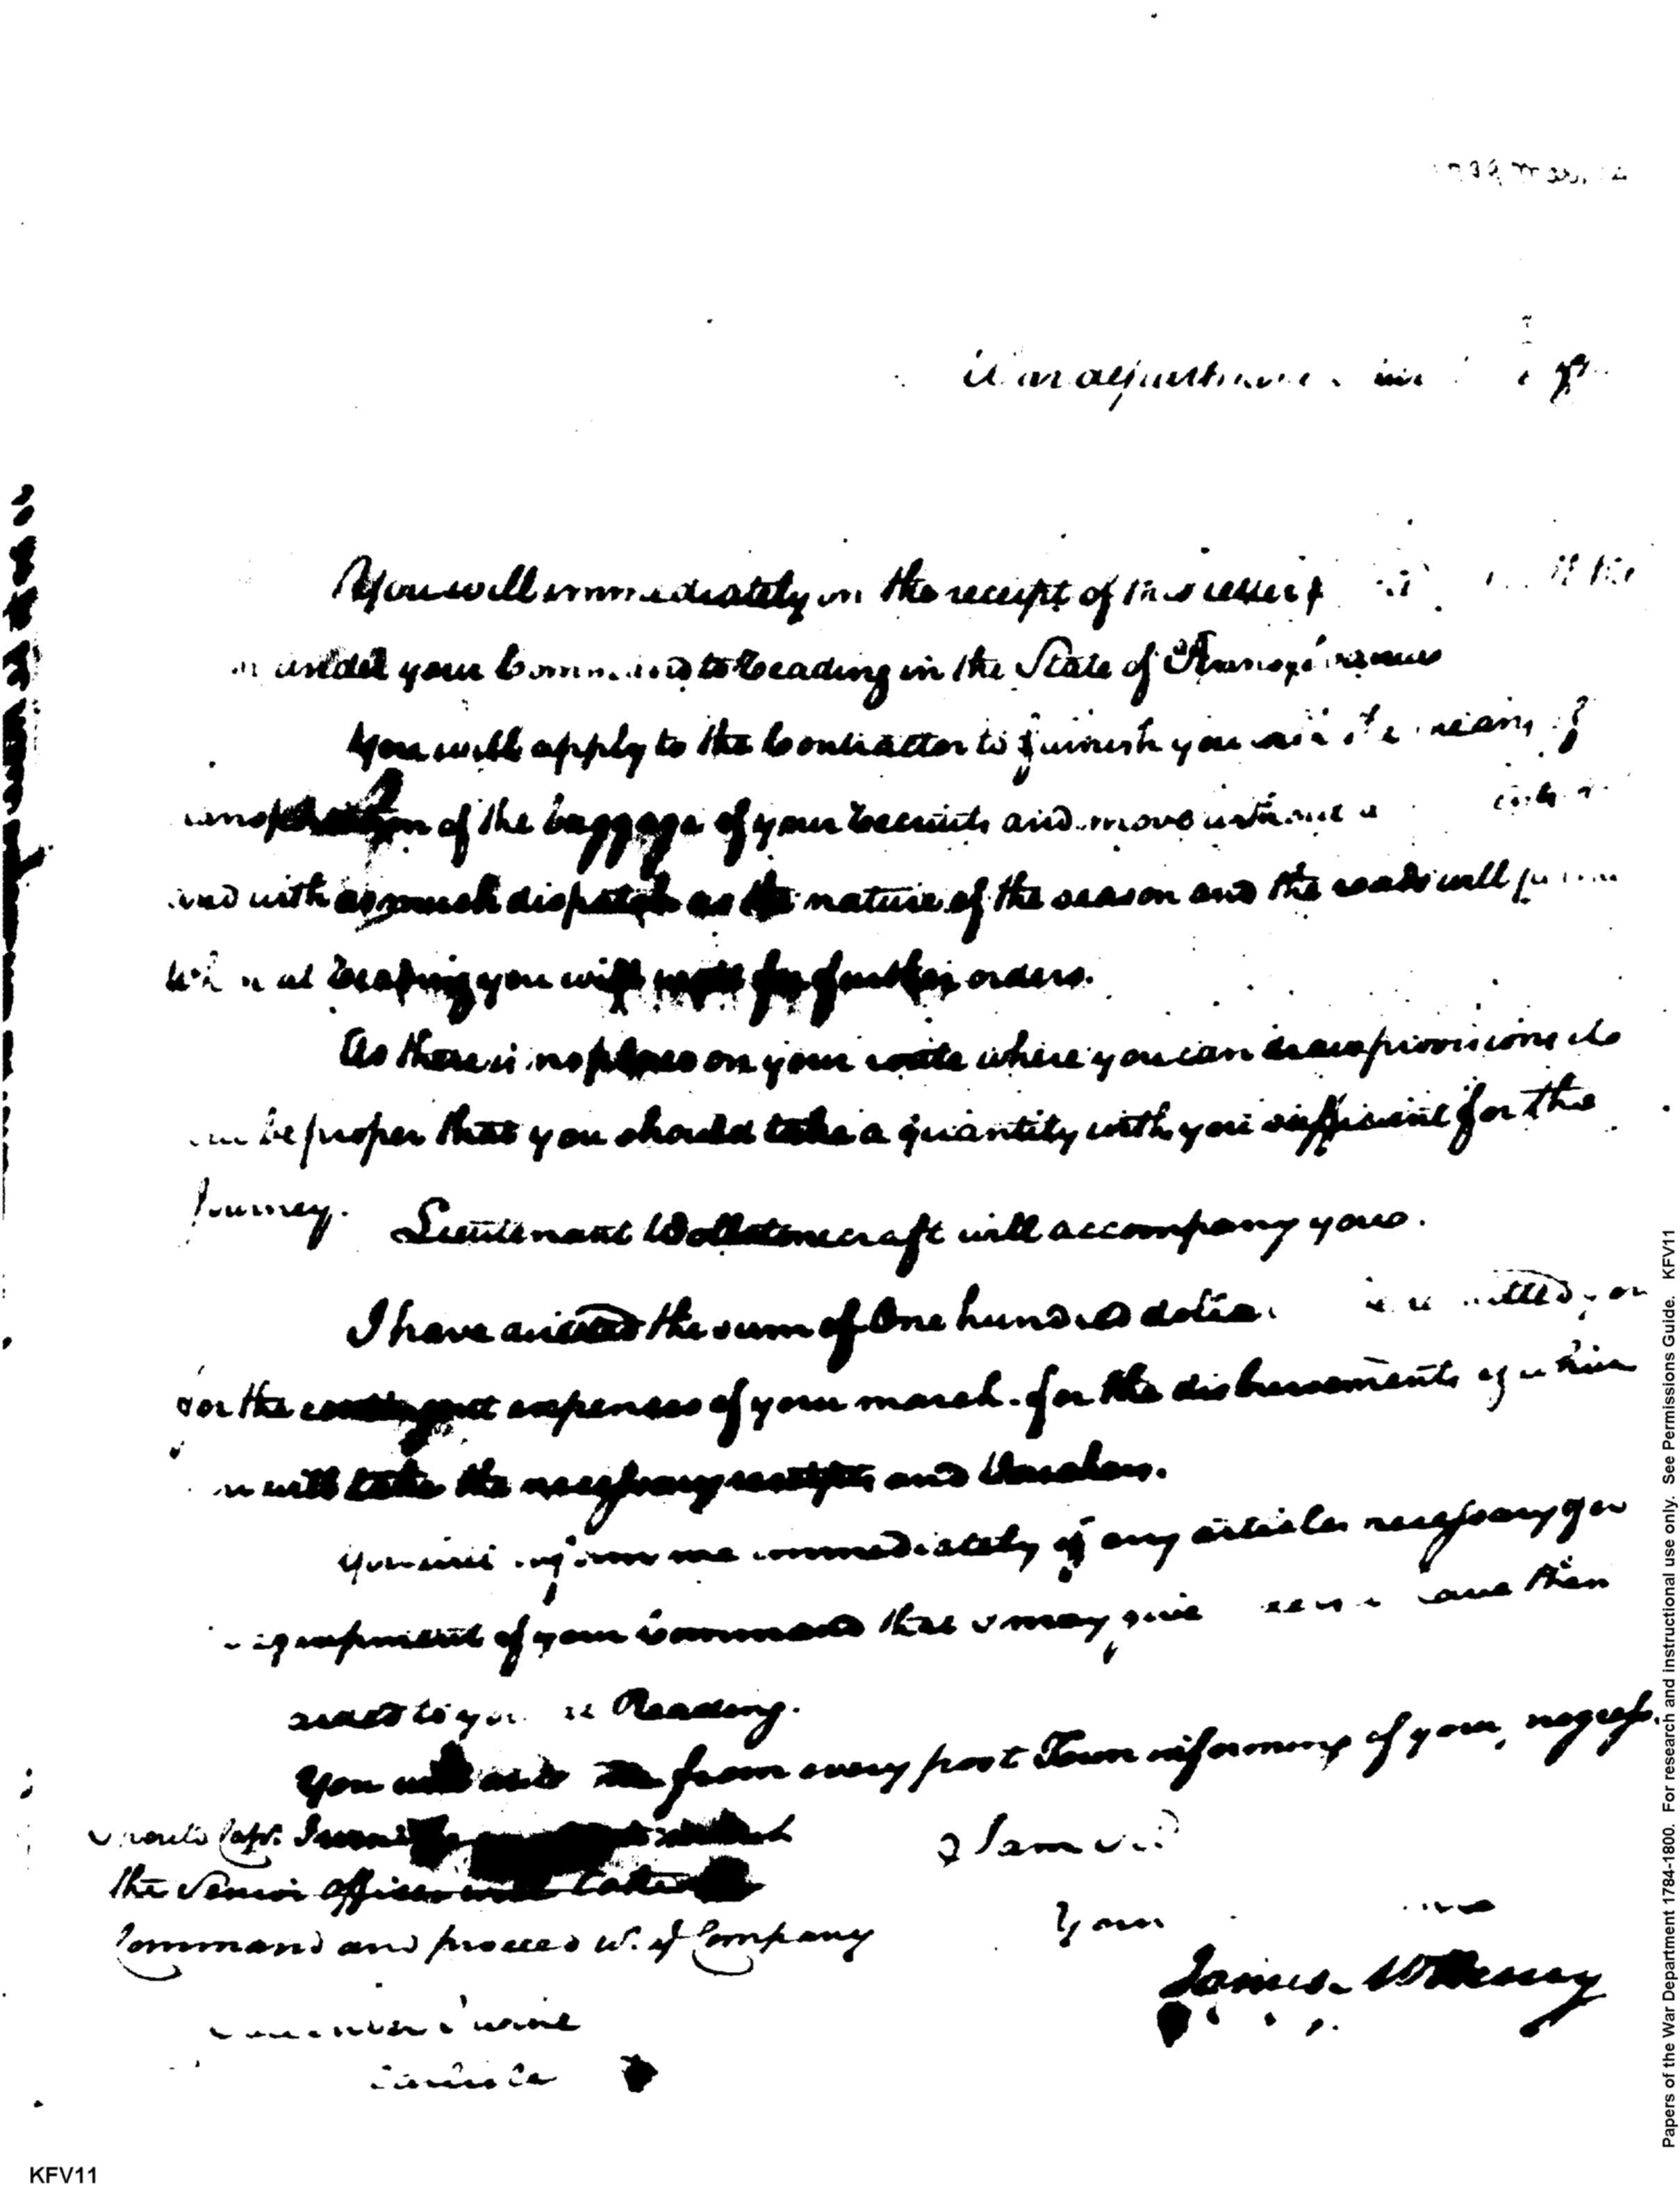 War department
You will immediately on the receipt of this letter the
under your Command to Reading in the State of Pennsylvania
You will apply to the Contractor to furnish you with the means of
of the baggage of your Recruits and move without
and with as much dispatch as the nature of the season and the roads will
at Reading you will wait for further orders.
As there is no place on your route where you can draw provisions it
be proper that you should take a quantity with you sufficient for the
Journey. Lieutenant Wollstonecraft will accompany you.
I have directed the sum of One hundred dollars you
for the contingent expenses of your march. for the disbursements of which
will take the necessary receipts and Vouchers.
You will inform me immediately of any articles necessary for
equipment of your Command that I may give them
sent to you at Reading.
You will from every post Town informing of your progress.
Should Capt.
the Senior officer will take
Command and proceed wt. ye Company
I am
Your
James McHenry
Carlisle
KFV11
Papers of the War Department 1784-1800. For research and instructional use only. See Permissions Guide. KFV11